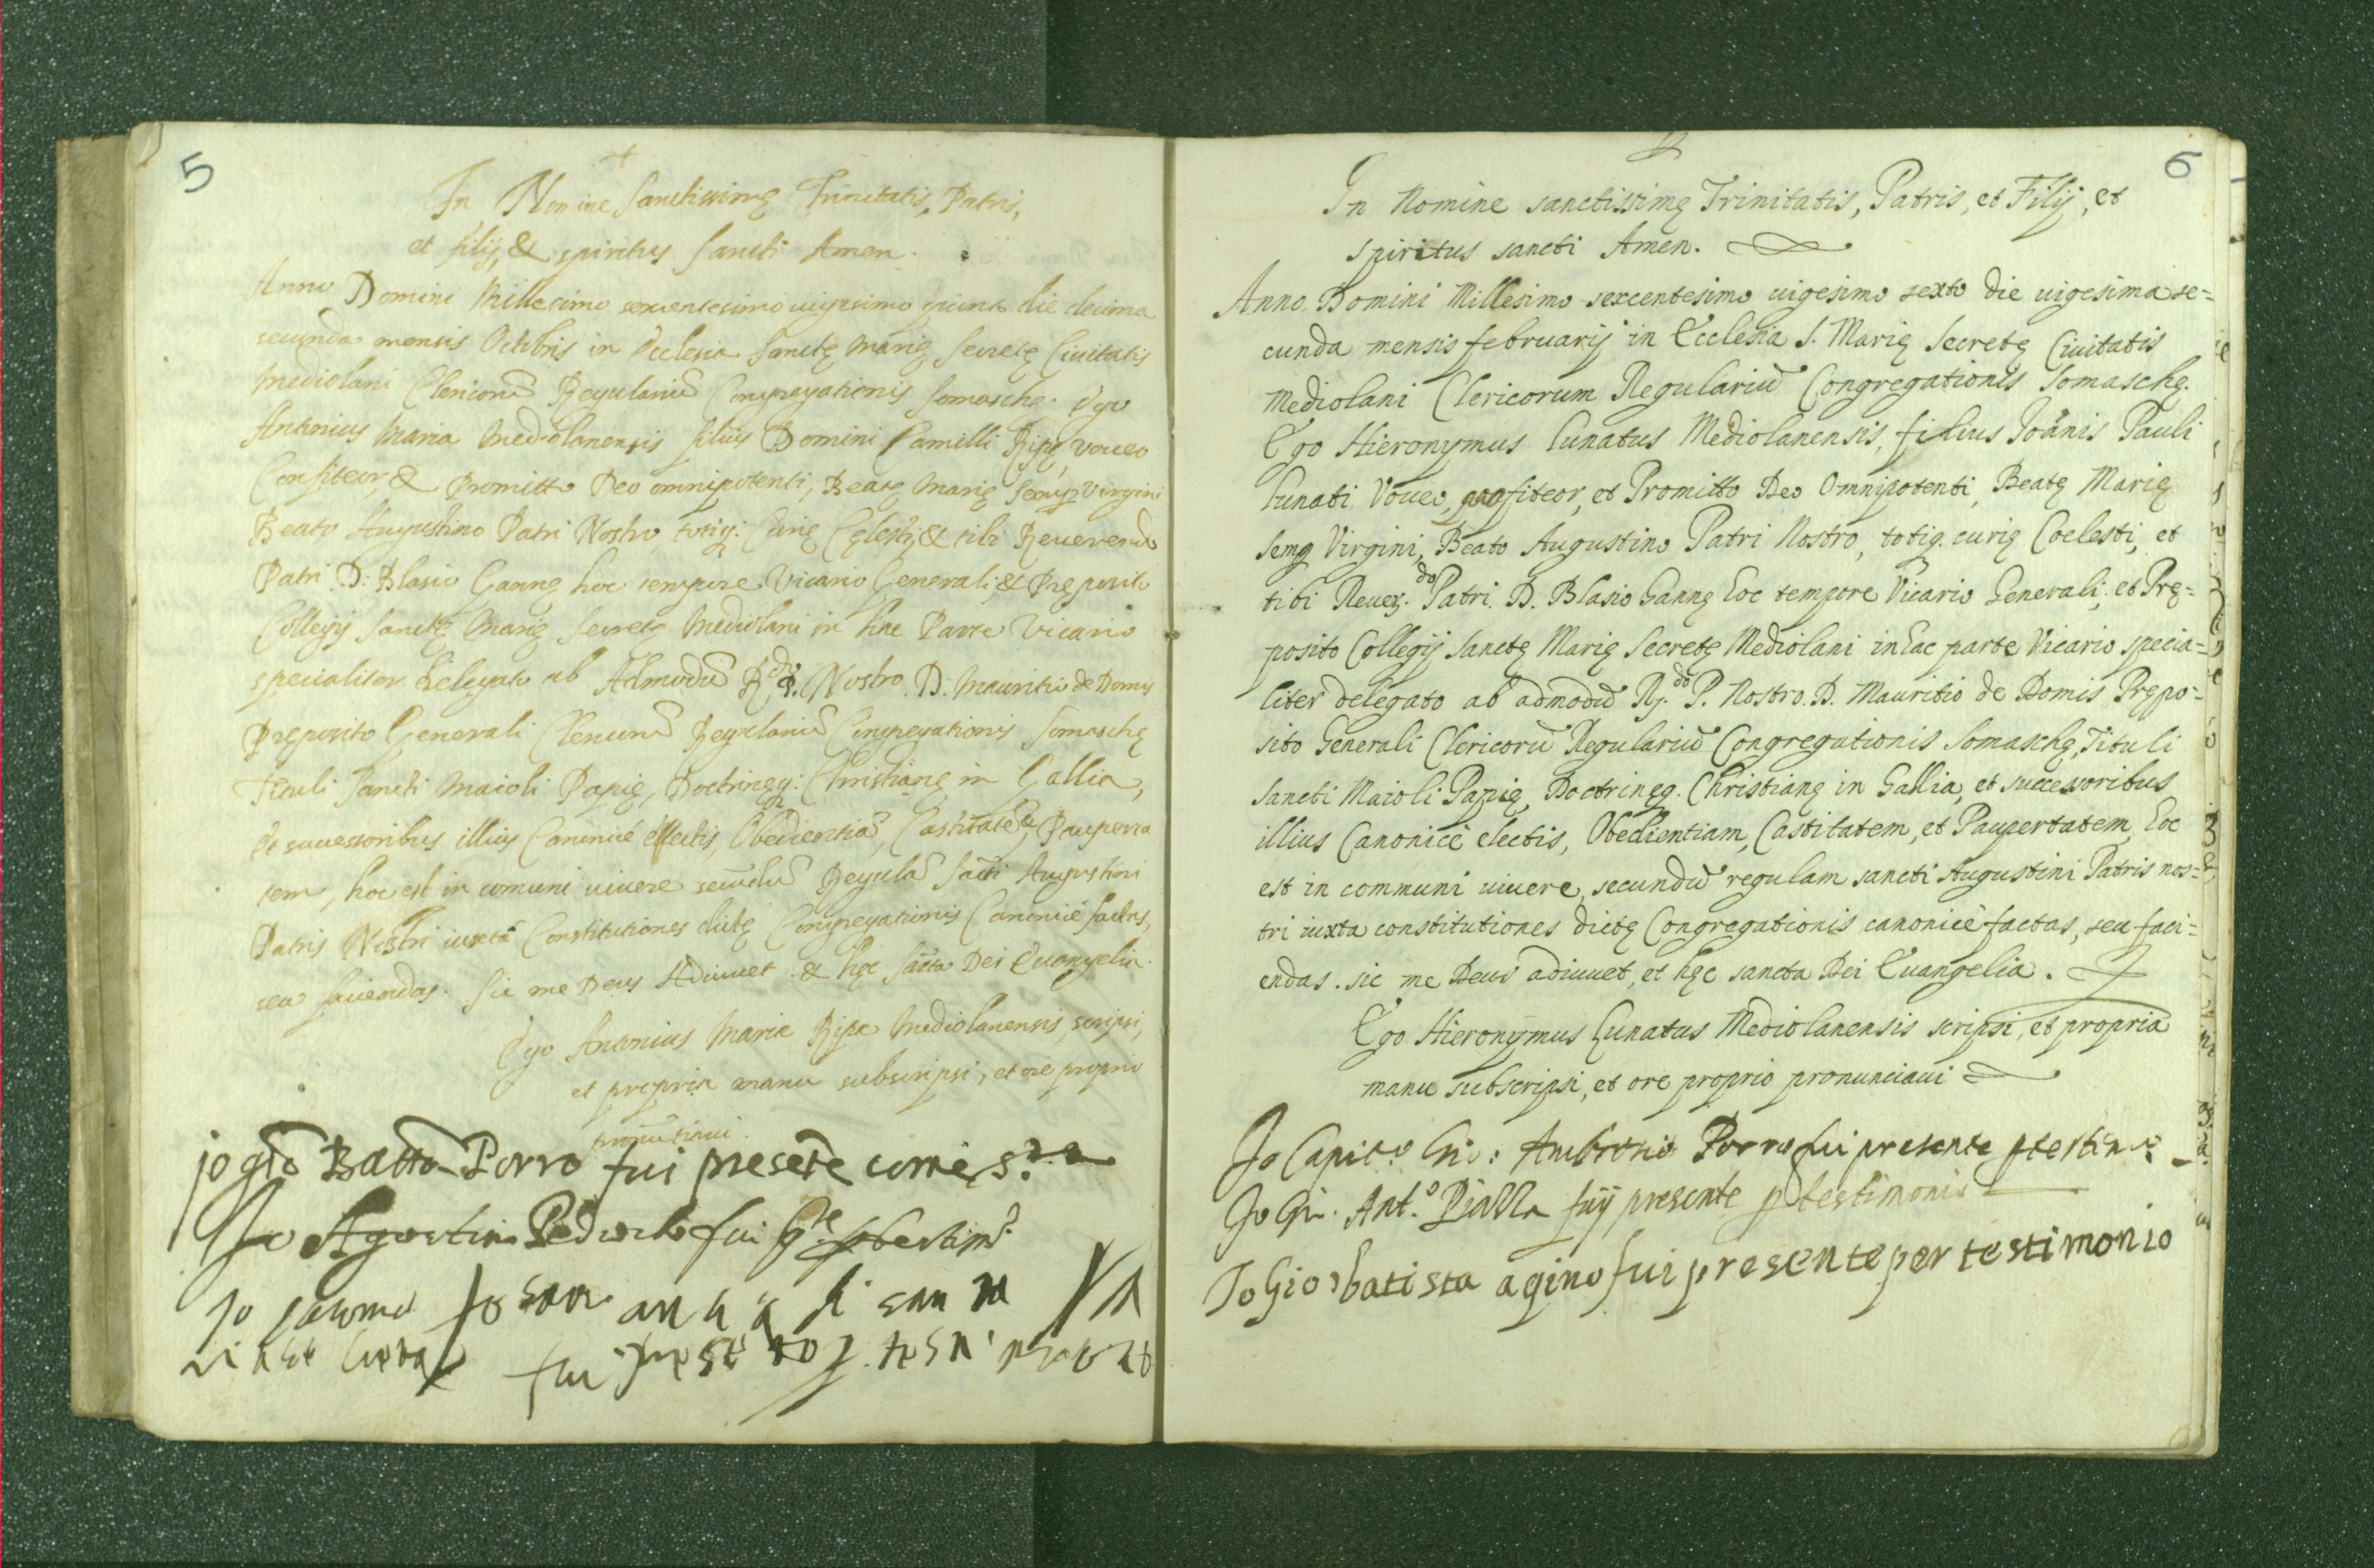 5
+
In Nomine Sanctissimę Trinitatis, Patris,
et filij, & spiritus Sancti Amen.
Anno Domini Millesimo sexcentesimo uigesimo quinto die decima
secunda mensis Octobris in Ecclesia Sanctę Marię Secretę Ciuitatis
Mediolani Clericorũ Regulariũ Congregationis Somaschę. Ego
Antonius Maria Mediolanensis filius Domini Camilli Ripę, voueo
Confiteor, & Promitto Deo omnipotenti, Beatę Marię Semp Virgini
Beato Augustino Patri Nostro, totiq: Curię Cęlesti, & tibi Reuerendo
Patri D: Blasio Gannę hoc tempore Vicario Generali, & Pręposito
Collegij Sanctę Marię Secretę Mediolani in hac Parte Vicario
specialiter Delegato ab Admodũ Rdo P. Nostro D. Mauritio de Domis
Pręposito Generali Clericorũ Regulariũ Congregationis Somaschę
Tituli Sancti Maioli Papię, Doctrinęq: Christianę in Gallia,
Et successoribus illius Canonicè electis, Obedientiã, Castitatẽ & Pauperta
tem, hoc est in comuni uiuere secũdũ Regulã Sãcti Augustini
Patris Nostri iuxtà Constitutiones dictę Congregationis Canonicè factas,
seu faciendas. Sic me Deus Adiuuet & hęc sãcta Dei Euangelia.
Ego Antonius Maria Ripa Mediolanensis, scripsi,
et propria manu subscripsi, et ore proprio
pronũtiaui.
jo gio Batta Porro fui presẽte come s.a
Io Agostin fui
Io
fui
6
In Nomine sanctissimę Trinitatis, Patris, et Filij, et
spiritus sancti Amen.
Anno Domini Millesimo sexcentesimo uigesimo sexto die uigesima se=
cunda mensis februarij in Ecclesia S. Marię Secretę Ciuitatis
Mediolani Clericorum Regulariũ Congregationis Somaschę.
Ego Hieronymus Lunatus Mediolanensis, filius Ioãnis Pauli
Lunati Voueo, profiteor, et Promitto Deo Omnipotenti, Beatę Marię
semp Virgini, Beato Augustino Patri Nostro, totiq. curię Coelesti, et
tibi Reuer.do Patri D. Blasio Gannę hoc tempore Vicario Generali, et Prę=
posito Collegij Sanctę Marię Secretę Mediolani in hac parte Vicario specia=
liter delegato ab admodũ R.do P. Nostro D. Mauritio de Domis Prępo=
sito Generali Clericorũ Regulariũ Congregationis Somaschę, Tituli
sancti Maioli Papię, Doctrinęq. Christianę in Gallia, et successoribus
illius Canonicè electis, Obedientiam, Castitatem, et Paupertatem, hoc
est in communi uiuere, secundũ regulam sancti Augustini Patris nos=
tri iuxta constitutiones dictę Congregationis canonicè factas, seu faci=
endas. sic me Deus adiuuet, et hęc sancta Dei Euangelia.
Ego Hieronymus Lunatus Mediolanensis scripsi, et propria
manu subscripsi, et ore proprio pronunciaui
Io Capit.o Gio: Ambrosio Porro fui presente p testim.o
Io Gi. Ant.o fuÿ presente p testimonio
Io Gio batista agino fui presente per testimonio